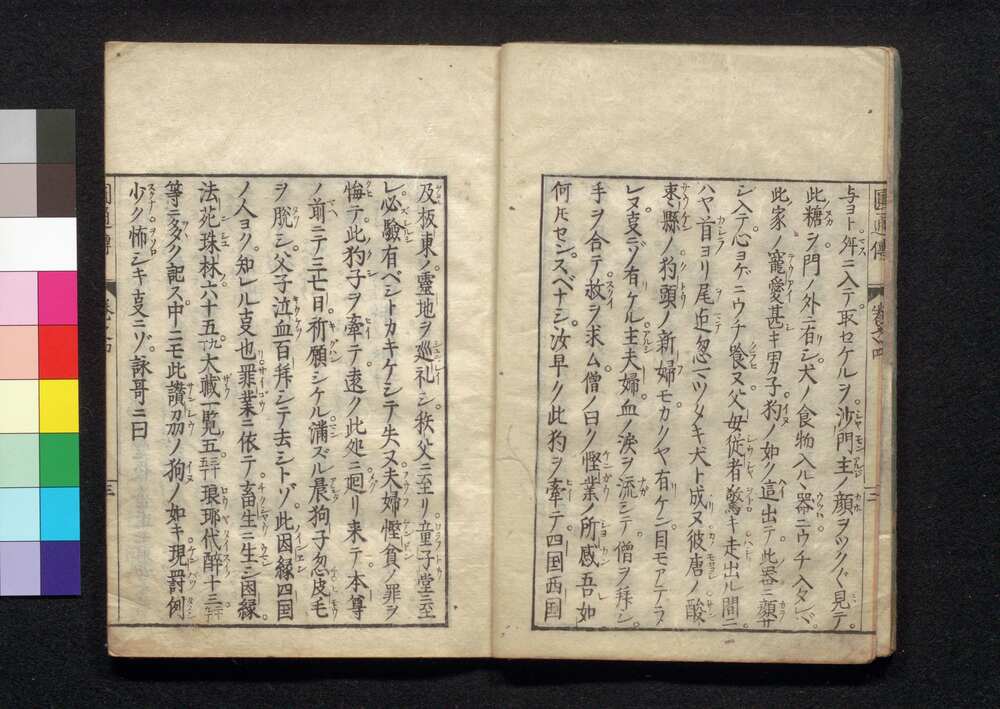 与ヨト舛ニ入テ取セケルヲ沙門主ノ顔ヲツク〲見テ
此糠ヲ門ノ外ニ有シ犬ノ食物入ル器ニウチ入タレバ
此家ノ寵愛甚キ男子狗ノ如ク這出テ此器ニ顔サ
シ入テ心ヨゲニウチ喰ヌ父母従者驚キ走出ル間ニ
ハヤ首ヨリ尾迠忽ニツタキ犬ト成ヌ彼唐ノ酸
棗縣ノ狗頭ノ新婦モカクヤ有ケン目モアテラ
レヌ叓ニゾ有ケル主夫婦血ノ涙ヲ流シテ僧ヲ拜シ
手ヲ合テ救ヲ求ム僧ノ曰ク慳業ノ所感吾如
何トモセンスベナシ汝早ク此狗ヲ牽テ四国西国
及板東ノ霊地ヲ巡礼シ秩父ニ至リ童子堂ニ至
レ必驗有ベシトカキケシテ失ヌ夫婦慳貪ノ罪ヲ
悔テ此狗子ヲ牽テ遠ク此処ニ廻リ来テ本尊
ノ前ニテ三七日祈願シケル満ズル晨狗子忽皮毛
ヲ脱シ父子泣血百拜シテ去シトゾ此因縁四国
ノ人ヨク知レル叓也罪業ニ依テ畜生ニ生シ因縁
法苑珠林六十五大蔵一覧五琅瑘代醉十三
等ニ多ク記ス中ニモ此讃刕ノ狗ノ如キ現罸例
少ク怖シキ叓ニゾ詠哥ニ曰